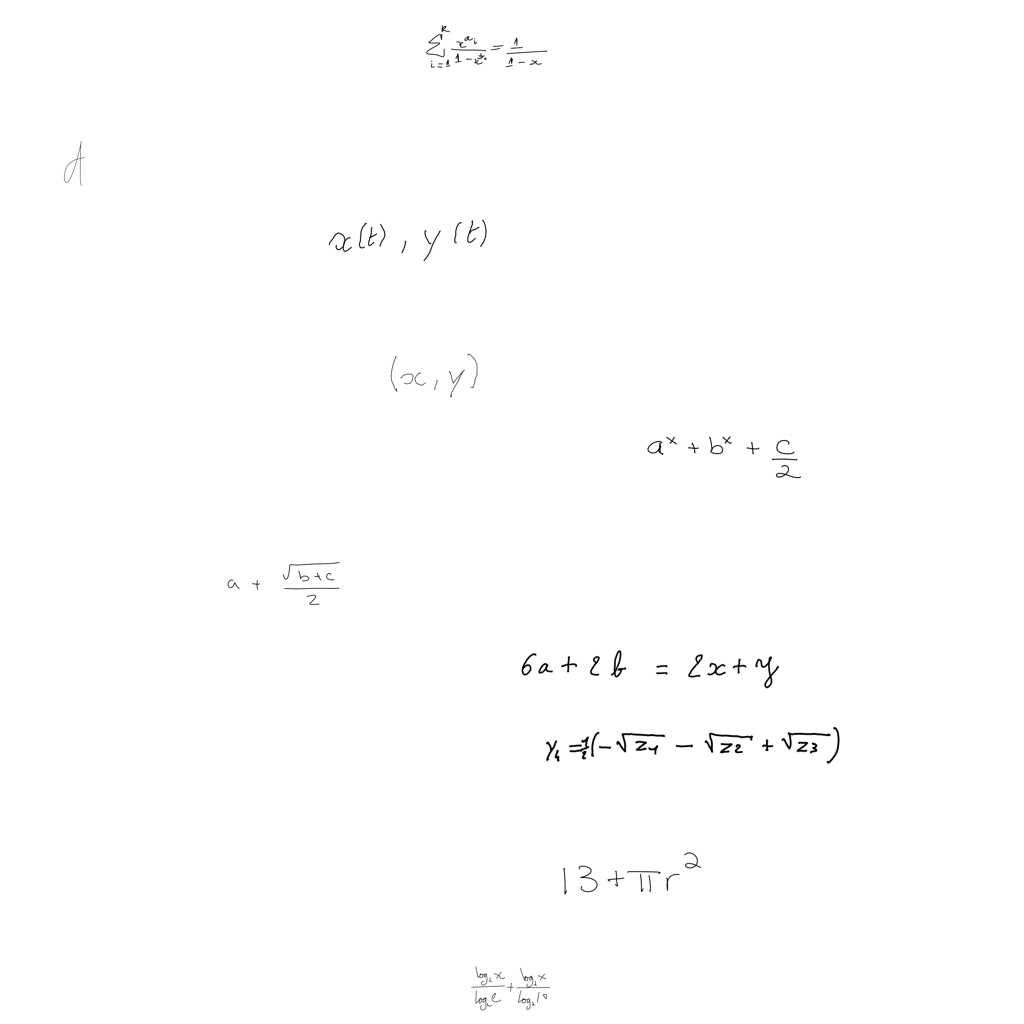 \sum_{i=1}^{k} \frac{x^{a_i}}{1-x^{d_i}} = \frac{1}{1-x}
A
x(t), y(t)
(x, y)
a^x + b^x + \frac{c}{2}
a + \frac{\sqrt{b+c}}{2}
6a + 2b = 2x + y
Y_4 = \frac{1}{2}(-\sqrt{z_1} - \sqrt{z_2} + \sqrt{z_3})
13 + \pi r^2
\frac{\log_2 x}{\log_2 e} + \frac{\log_2 x}{\log_2 10}